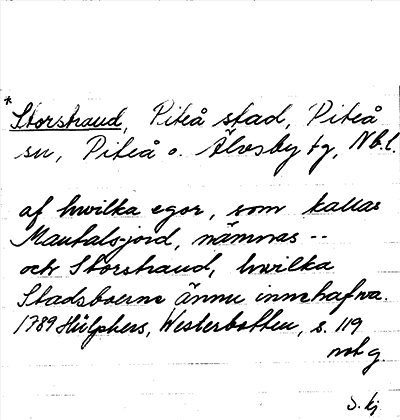 * Storstrand, Piteå stad, Piteå
sn, Piteå o. Älvsby tg, Nb.l.
af hwilka egor, som kallas
Mantalsjord, nämnas --
och Storstrand, hwilka
Stadsboerne ännu innehafva.
1789 Hülphers, Westerbotten, s. 119
not g.
S. kj